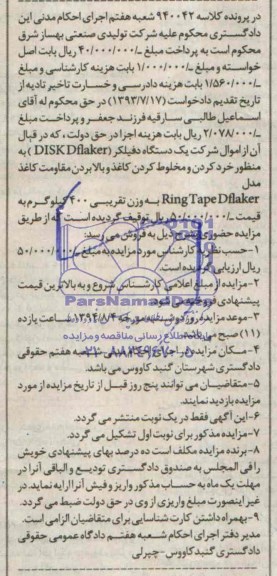 در پرونده کلاسه ۹۴۰۰۴۲ شعبه هفتم اجرای احکام مدنی این
دادگستری محکوم علیه شرکت تولیدی صنعتی بهساز شرق
محکوم است به پرداخت مبلغ ۴۰/۰۰۰/۰۰۰/- ریال بابت اصل
خواسته و مبلغ ۱/۰۰۰/۰۰۰/- بابت هزینه کارشناسی و مبلغ
۱/۵۶۰/۰۰۰/- بابت هزینه دادرسی و خسارت تاخیر تادیه از
تاریخ تقدیم دادخواست (۱۳۹۳/۷/۱۷) در حق محکوم له آقای
اسماعیل طالبی سارقیه فرزند جعفر و پرداخت مبلغ
۲/۰۷۸/۰۰۰/- ریال بابت هزینه اجرا در حق دولت ، که در قبال
آن از اموال شرکت یک دستگاه دفیلکر (DISK Dflaker) به
منظور خرد کردن و مخلوط کردن کاغذ و بالا بردن مقاومت کاغذ
مدل
Ring Tape Dflaker به وزن تقریبی ۴۰۰ کیلوگرم به
قیمت ۵۰/۰۰۰/۰۰۰/- ریال توقیف گردیده است که از طریق
مزایده حضوری بشرح ذیل به فروش می رسد:
۱-حسب نظریه کارشناس مورد مزایده به مبلغ ۵۰/۰۰۰/۰۰۰/-
ریال ارزیابی گردیده است.
۲-مزایده از مبلغ اعلامی کارشناس شروع و به بالاترین قیمت
پیشنهادی فروخته می شود.
۳-موعد مزایده روز دوشنبه مورخه ۱۳۹۴/۸/۴ ساعت یازده
(۱۱) صبح می باشد.
۴-مکان مزایده شعبه هفتم حقوقی
دادگستری شهرستان گنبد کاووس می باشد.
۵-متقاضیان می توانند پنج روز قبل از تاریخ مزایده از مورد
مزایده بازدید نمایند.
۶-این آگهی فقط در یک نوبت منتشر می گردد.
۷-مزایده مذکور برای نوبت اول تشکیل می گردد.
۸-برنده مزایده مکلف است ده درصد بهای پیشنهادی خویش
را فی المجلس به صندوق دادگستری تودیع و الباقی آنرا در
مهلت یک ماه به حساب مذکور واریز و فیش آنرا ارایه نماید. در
غیر اینصورت مبلغ واریزی از وی در حق دولت ضبط می گردد.
۹-بهمراه داشتن کارت شناسایی برای متقاضیان الزامی است.
مدیر دفتر اجرای احکام شعبه هفتم دادگاه عمومی حقوقی
دادگستری گنبدکاووس-چپرلی
ParsNamadData
پایگاه اطلاع رسانی مناقصه و مزایده